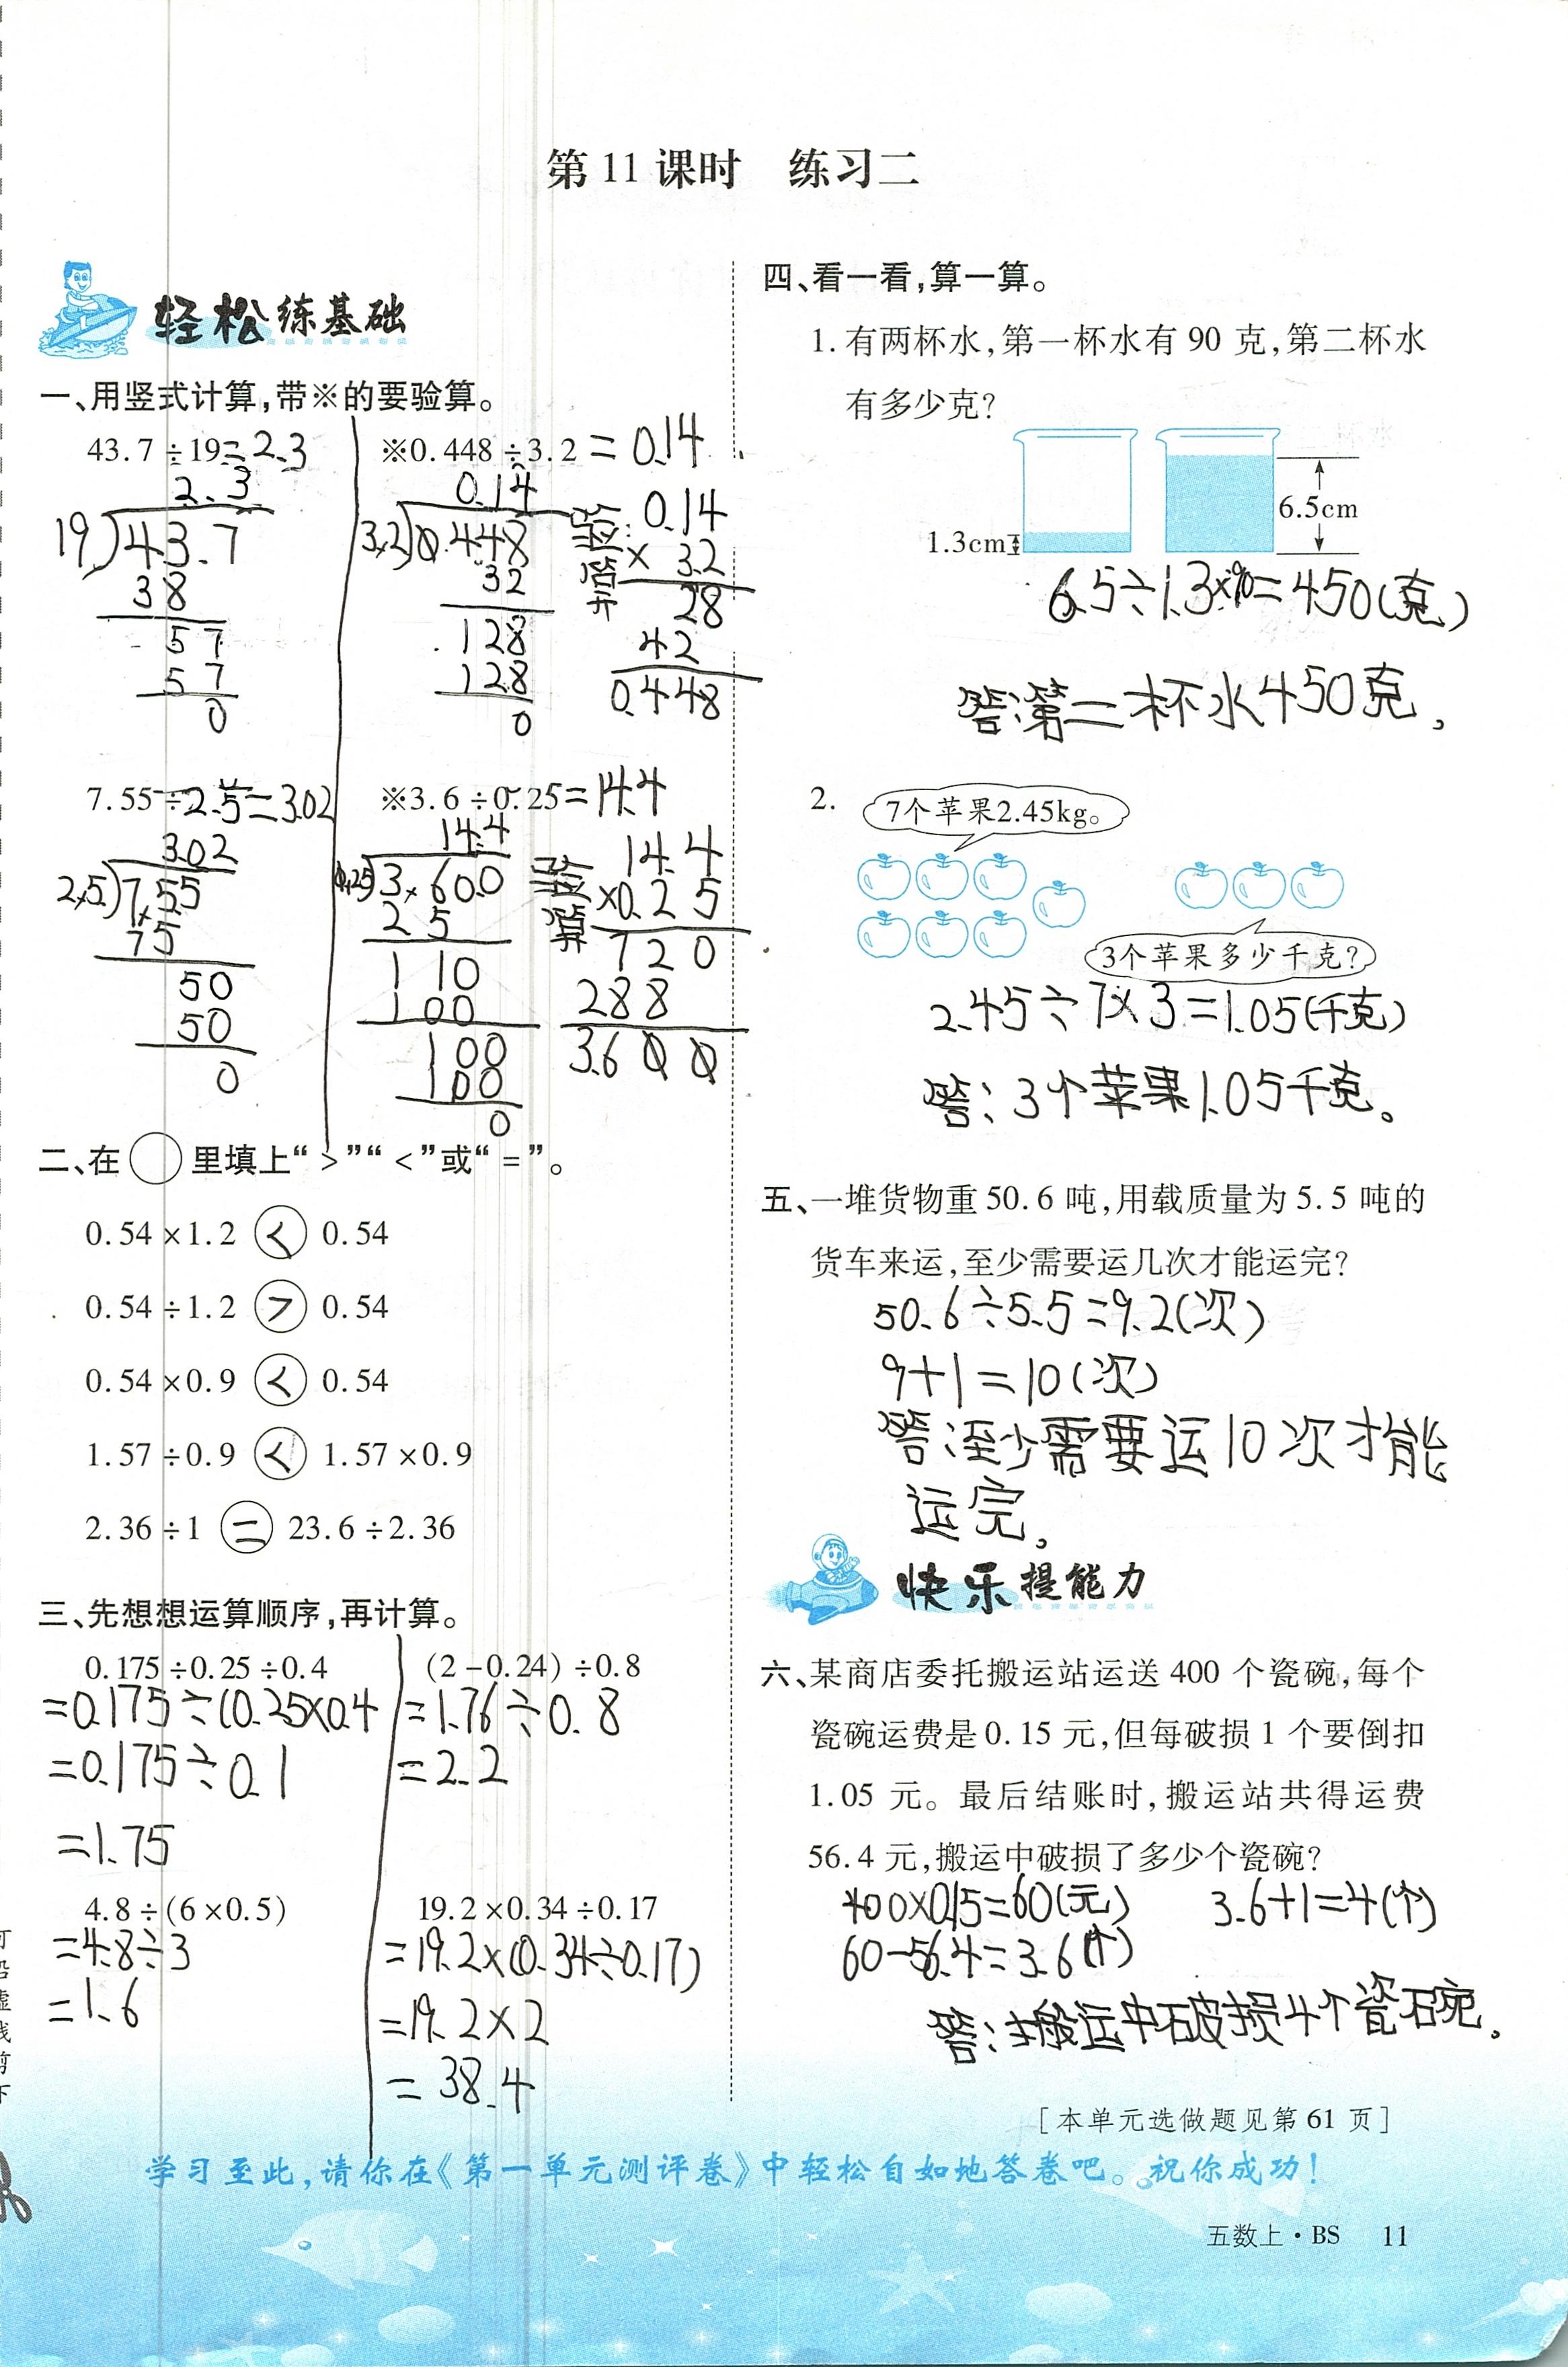 第11课时 练习二
轻松练基础
一、用竖式计算,带※的要验算。
43.7÷19=2.3
2.3
19)43.7
38
57
57
0
※0.448÷3.2=0.14
0.14
3.2)0.448
32
128
128
0
验算:
0.14
×3.2
28
42
0.448
7.55÷2.5=3.02
3.02
2.5)7.55
75
50
50
0
※3.6÷0.25=14.4
14.4
0.25)3.600
25
110
100
100
100
0
验算
14.4
×0.25
720
288
3.600
二、在○里填上“>”“<”或“=”。
0.54×1.2 < 0.54
0.54÷1.2 > 0.54
0.54×0.9 < 0.54
1.57÷0.9 < 1.57×0.9
2.36÷1 = 23.6÷2.36
三、先想想运算顺序,再计算。
0.175÷0.25÷0.4
=0.175÷(0.25×0.4
=0.175÷0.1
=1.75
(2-0.24)÷0.8
=1.76÷0.8
=2.2
4.8÷(6×0.5)
=4.8÷3
=1.6
19.2×0.34÷0.17
=19.2×(0.34÷0.17)
=19.2×2
=38.4
四、看一看,算一算。
1.有两杯水,第一杯水有90克,第二杯水
有多少克?
1.3cm
6.5cm
6.5÷1.3×90=450(克)
答:第二杯水450克。
2.
7个苹果2.45kg。
3个苹果多少千克?
2.45÷7×3=1.05(千克)
答:3个苹果1.05千克。
五、一堆货物重50.6吨,用载质量为5.5吨的
货车来运,至少需要运几次才能运完?
50.6÷5.5=9.2(次)
9+1=10(次)
答:至少需要运10次才能
运完。
快乐提能力
六、某商店委托搬运站运送400个瓷碗,每个
瓷碗运费是0.15元,但每破损1个要倒扣
1.05元。最后结账时,搬运站共得运费
56.4元,搬运中破损了多少个瓷碗?
400×0.15=60(元)
60-56.4=3.6(个)
3.6+1=4(个)
答:搬运中破损4个瓷碗。
[本单元选做题见第61页]
学习至此,请你在《第一单元测评卷》中轻松自如地答卷吧。祝你成功!
五数上·BS 11